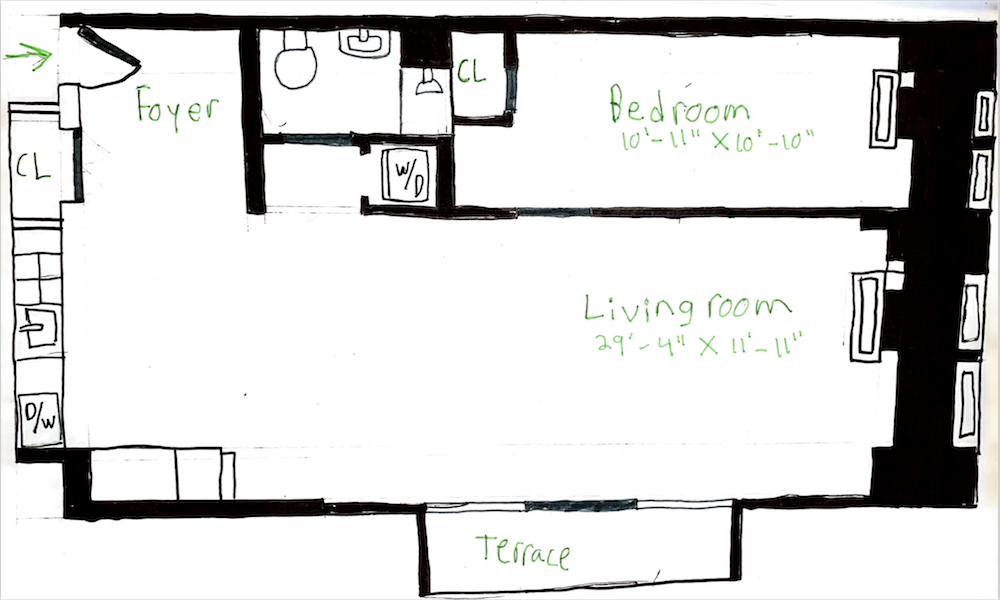 Foyer
CL
Bedroom
10'-11" X 10'-10"
CL
W/D
Living room
29'-4" X 11'-11"
D/W
Terrace